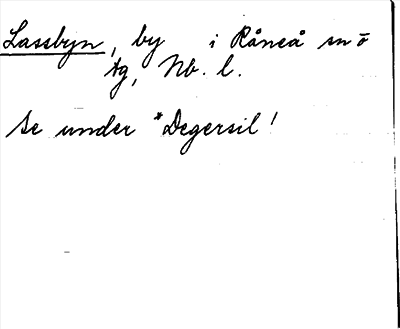 Lassbyn, by i Råneå sn o
tg, Nb. l.
Se under *Degersil!